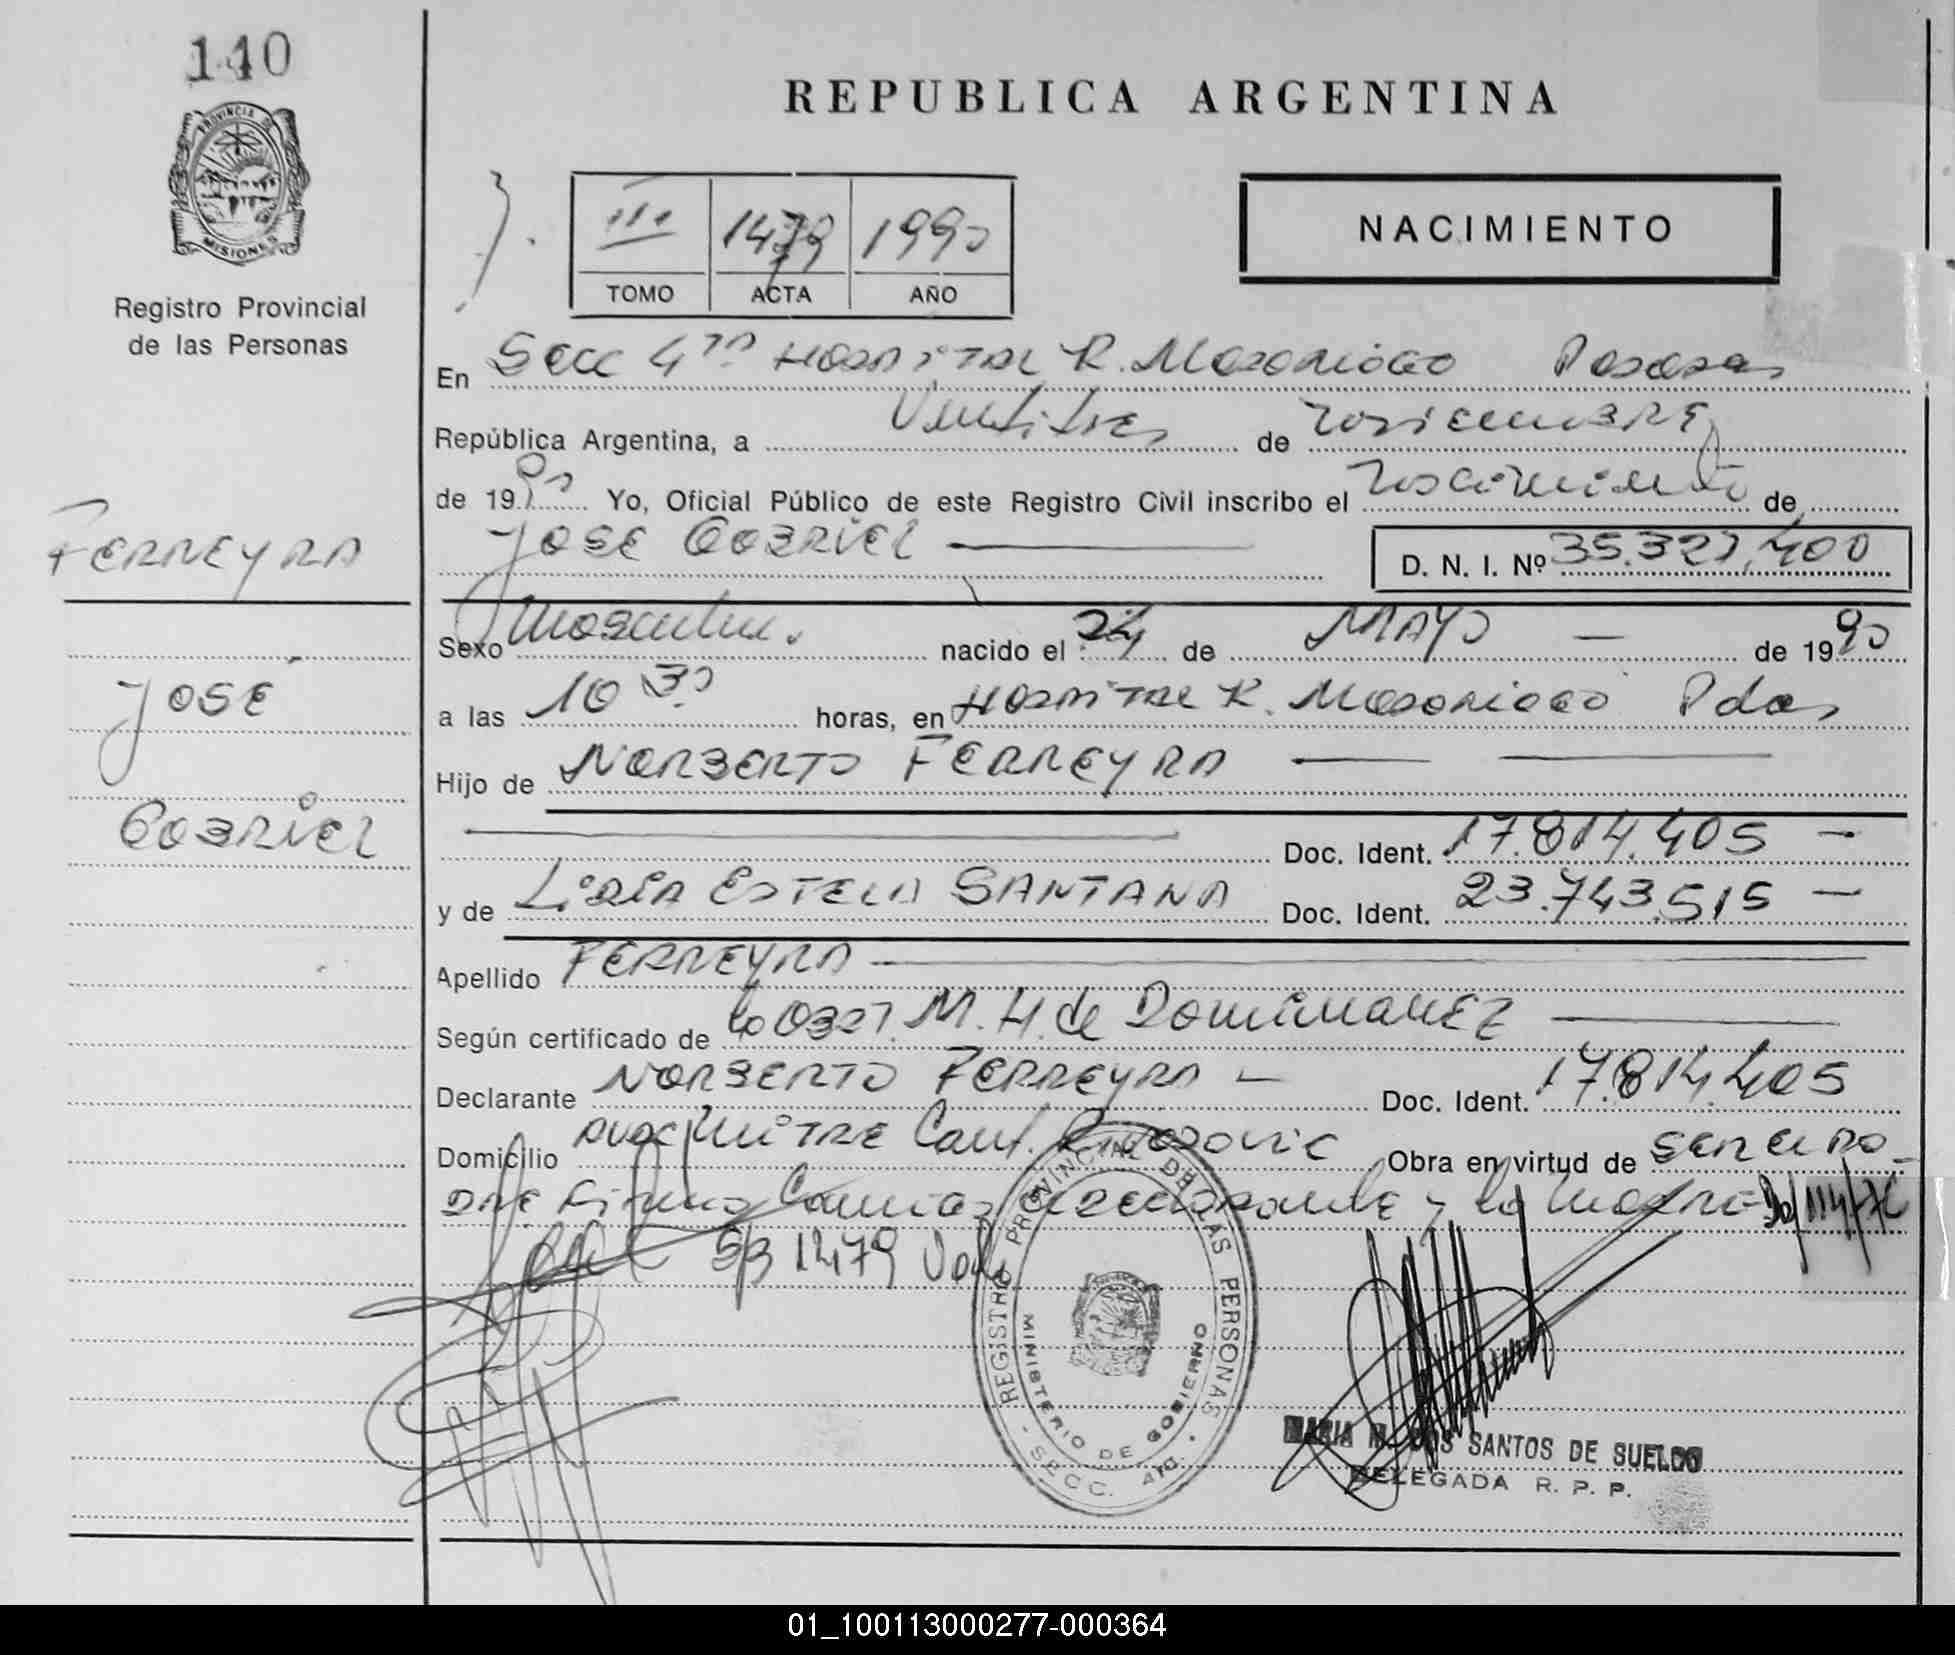 140
REPUBLICA ARGENTINA
PROVINCIA DE
MISIONES
Registro Provincial
de las Personas
III 1479 1990
TOMO ACTA AÑO
NACIMIENTO
En Secc 4ta Hospital R. Madariaga Posadas
República Argentina, a Veintitres de noviembre
de 1990 Yo, Oficial Público de este Registro Civil inscribo el nacimiento de
FERREYRA
JOSE GABRIEL D. N. I. Nº 35.327.400
Sexo Masculino. nacido el 24 de MAYO de 1990
JOSÉ
a las 10 30 horas, en Hospital R. Madariaga Pdas
Hijo de NORBERTO FERREYRA
GABRIEL
Doc. Ident. 17.814.405
y de LIDIA ESTELA SANTANA Doc. Ident. 23.743.515
Apellido FERREYRA
Según certificado de la Obst. M. H. de
Declarante NORBERTO FERREYRA Doc. Ident. 17.814.405
Domicilio Mitre Cant. Obra en virtud de ser el pa-
dre Firma el declarante y la madre
1479 Vale
REGISTRO PROVINCIAL DE LAS PERSONAS
MINISTERIO DE GOBIERNO
SECC. 4ta.
MARIA SANTOS DE SUELDO
DELEGADA R. P. P.
01_100113000277-000364